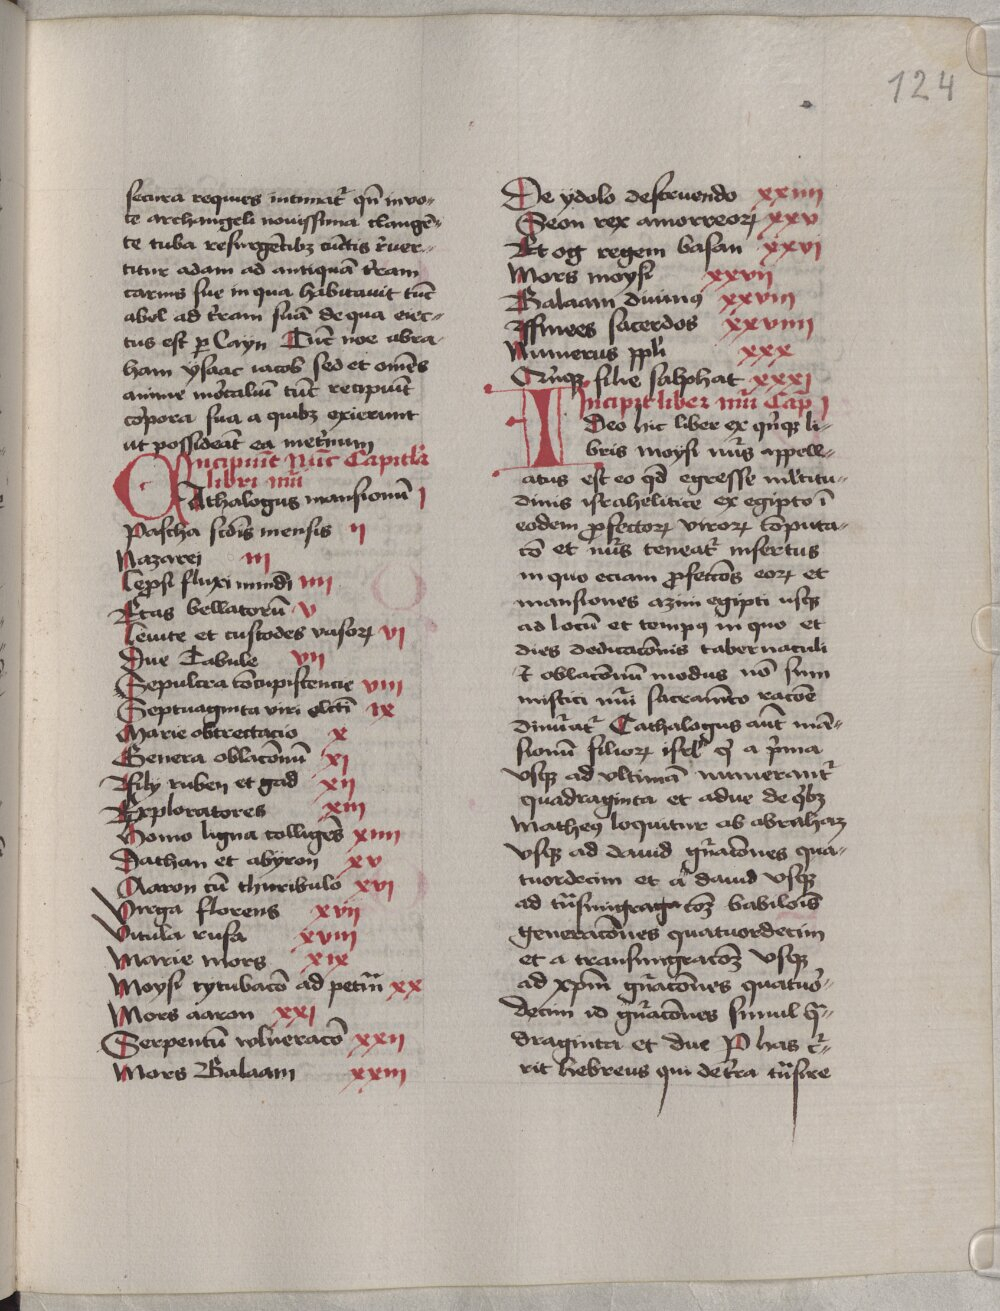 124
secura requies intimat᷑ qn̄ in vo-
te archangeli novissima clangē-
te tuba resurgētibꝫ cūctis r̄ver-
titur adam ad antiquā t̄ram
carnis sue in qua habitavit tūc
abel ad t̄ram suā de qua eiec-
tus est ꝑ Cayn Tūc noe abra-
ham ysaac iacob sed et omēs
anime mortaliū tūc recipiūt
corpora sua a quibꝫ exierunt
ut possideāt ea inet̄num
Incipiūt Nūc Capitl̄a
libri iiii
Cathalogus mansionū i
Pascha scd̄i mensis ii
Nazarei iii
Lep̄si fluxi mūdi iiii
Etas bellatorū v
Levite et custodes vasoꝝ vi
Due Tabule vii
Sepulcra cōcupiscencie viii
Septuaginta viri electi ix
Marie obtrectacio x
Genera oblaconū xi
Filij ruben et gad xii
Exploratores xiii
Homo ligna colligēs xiiii
Dathan et abyron xv
Aaron cū thuribulo xvi
Virga florens xvii
Vitula rufa xviii
Marie mors xix
Moysi tytubaco ad petrā xx
Mors aaron xxi
Serpentū vulneraco xxii
Mors Balaam xxiii
De ydolo destruendo xxiiii
Seon rex amorreoꝝ xxv
Et og regem basan xxvi
Mors moysi xxvii
Balaam divinꝰ xxviii
Ffinees sacerdos xxviiii
Numerus ppl̄i xxx
Qͥnqꝫ filie salphat xxxi
Incipit liber iiii Cap i
Ideo hic liber ex qͥnqꝫ li-
bris moysi nūs appelle-
atus est eo qd̄ egresse ml̄titu-
dinis israhelitice ex egipto ī
eodem ꝓfectoꝝ viroꝝ cōputa-
co et nūs teneat᷑ insertus
in quo eciam ꝓfectōes eoꝝ et
mansiones azim egipti usqꝫ
ad locū et tempꝰ in quo et
dies dedicacōnis tabernaculi
⁊ oblaconū modus nō sum
mistici nūi sacramēto racōe
dimīat᷑ Cathalogus aūt mā-
sionū filioꝝ isrl̄ qͥ a pͥma
vsqꝫ ad vltimā numerant᷑
quadraginta et adue de qͥbꝫ
Matheꝰ loquitur ab abraham
vsqꝫ ad david gn̄acōnes qua-
tuordecim et a david vsqꝫ
ad trānsmigragacōꝫ babilois
generacōnes quatuordecim
et a transmigracōꝫ vsqꝫ
ad xp̄m gn̄acōnes quatuor-
decim id gn̄acōnes simul qͣ-
draginta et due P has cͣ-
rit hebreus qui de t̄ra trānsire